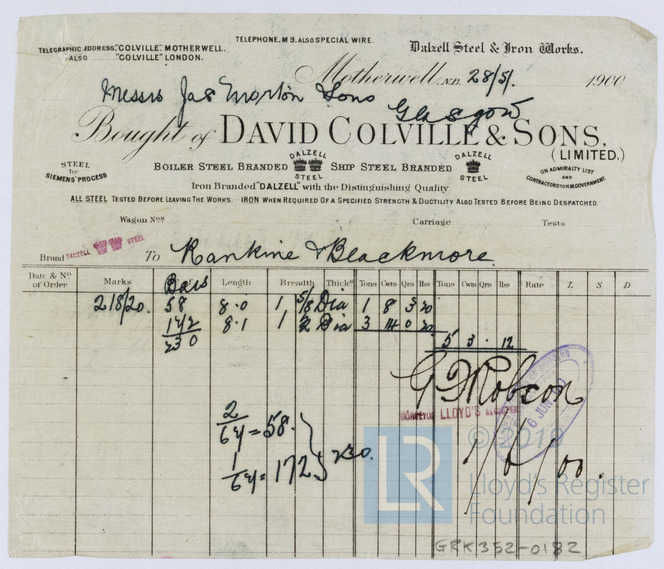 TELEPHONE, M 9. ALSO SPECIAL WIRE.
TELEGRAPHIC ADDRESS, "COLVILLE", MOTHERWELL.
ALSO "COLVILLE" LONDON.
Dalzell Steel & Iron Works.
Motherwell, N.B. 28/5/ 1900
Messrs Jas Morton & Sons
Glasgow
Bought of DAVID COLVILLE & SONS,
(LIMITED.)
STEEL by SIEMENS' PROCESS
BOILER STEEL BRANDED DALZELL STEEL SHIP STEEL BRANDED DALZELL STEEL
ON ADMIRALTY LIST AND CONTRACTORS TO H.M. GOVERNMENT.
Iron Branded "DALZELL" with the Distinguishing Quality
ALL STEEL TESTED BEFORE LEAVING THE WORKS. IRON WHEN REQUIRED OF A SPECIFIED STRENGTH & DUCTILITY ALSO TESTED BEFORE BEING DESPATCHED.
Wagon Nos Carriage Tests
Brand DALZELL STEEL To Rankine & Blackmore
Date & No of Order Marks Bars Length Breadth Thickss Tons Cwts Qrs lbs Tons Cwts Qrs lbs Rate £ S D
218/20. 58 8.0 1 5/8 Dia 1 8 3 20
172 8.1 1 1/2 Dia 3 14 0 20
230 5 3 . 12
G F Robson
SURVEYOR LLOYD'S REGISTER
6 JUN
2/64 = 58.
1/64 = 172 } 230.
1/6/00.
© 2019
LR
Lloyd's Register
Foundation
GRK352-0182